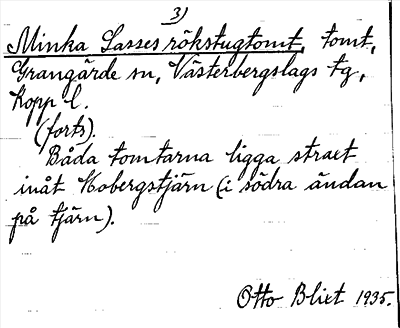 3)
Minka Lasses rökstugtomt, tomt,
Grangärde sn, Västerbergslags tg,
Kopp l.
(forts).
Båda tomtarna ligga straxt
inåt Hobergstjärn (i södra ändan
på tjärn).
Otto Blixt 1935.